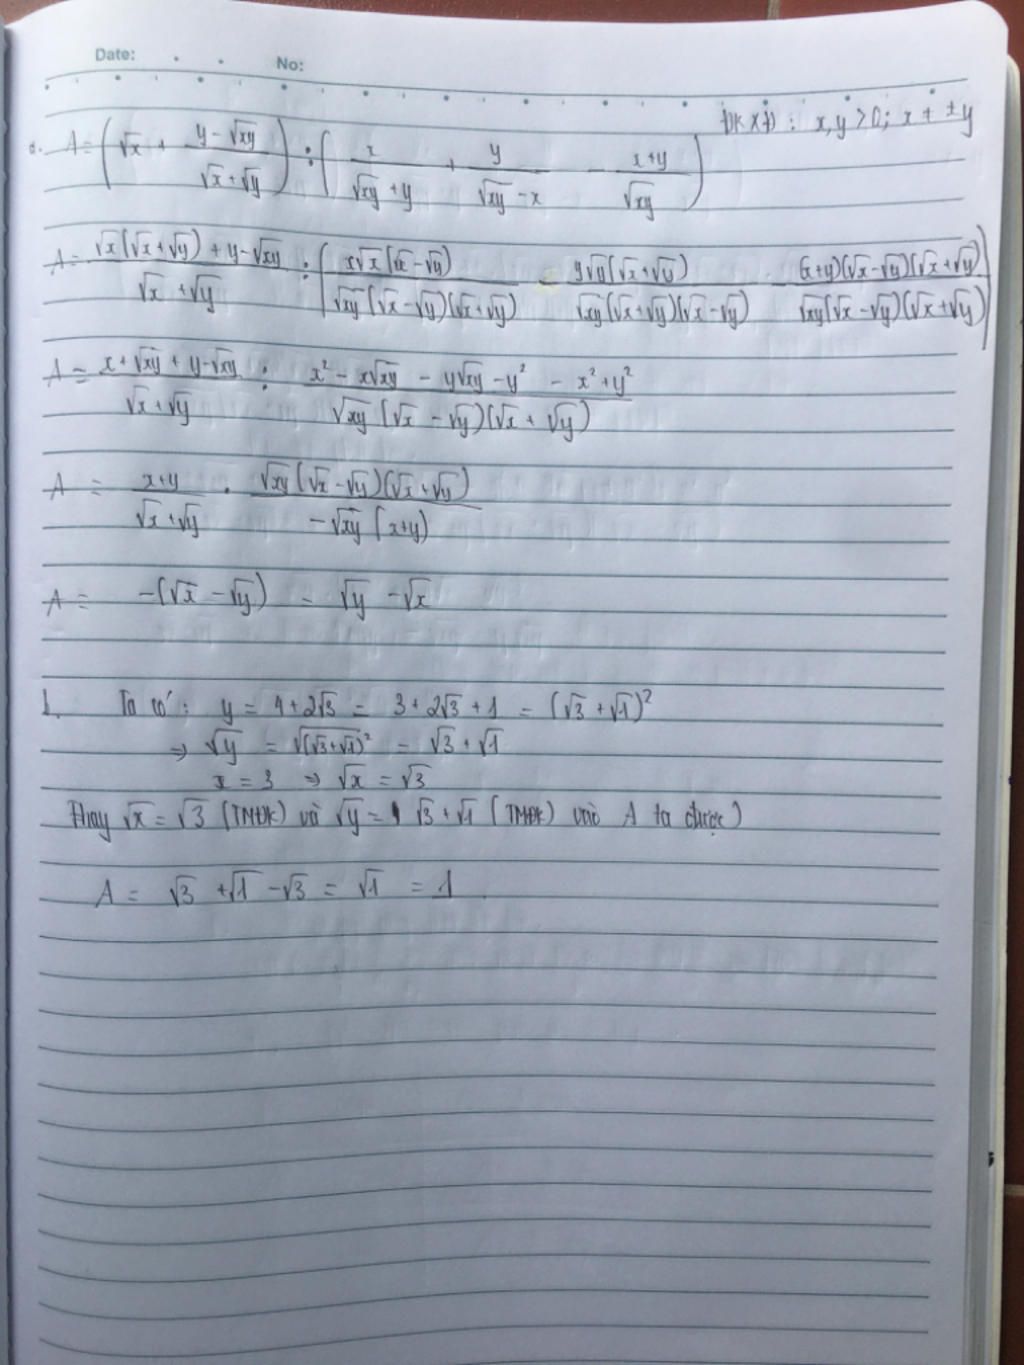 Date:
No:
ĐKXĐ : x, y > 0; x ≠ ±y
a. A = (√x + (y - √xy)/(√x + √y)) : (x/(√xy + y) + y/(√xy - x) - (x+y)/√xy)
A = (√x(√x + √y) + y - √xy)/(√x + √y) : (x√x(√x - √y)/(√xy(√x - √y)(√x + √y)) - y√y(√x + √y)/(√xy(√x + √y)(√x - √y)) - (x+y)(√x - √y)(√x + √y)/(√xy(√x - √y)(√x + √y)))
A = (x + √xy + y - √xy)/(√x + √y) : (x² - x√xy - y√xy - y² - x² + y²)/(√xy(√x - √y)(√x + √y))
A = (x+y)/(√x + √y) . √xy(√x - √y)(√x + √y)/(-√xy(x+y))
A = -(√x - √y) = √y - √x
b. Ta có : y = 4 + 2√3 = 3 + 2√3 + 1 = (√3 + √1)²
⇒ √y = √(√3+√1)² = √3 + √1
x = 3 ⇒ √x = √3
Thay √x = √3 (TMĐK) và √y = √3 + √1 (TMĐK) vào A ta được)
A = √3 + √1 - √3 = √1 = 1